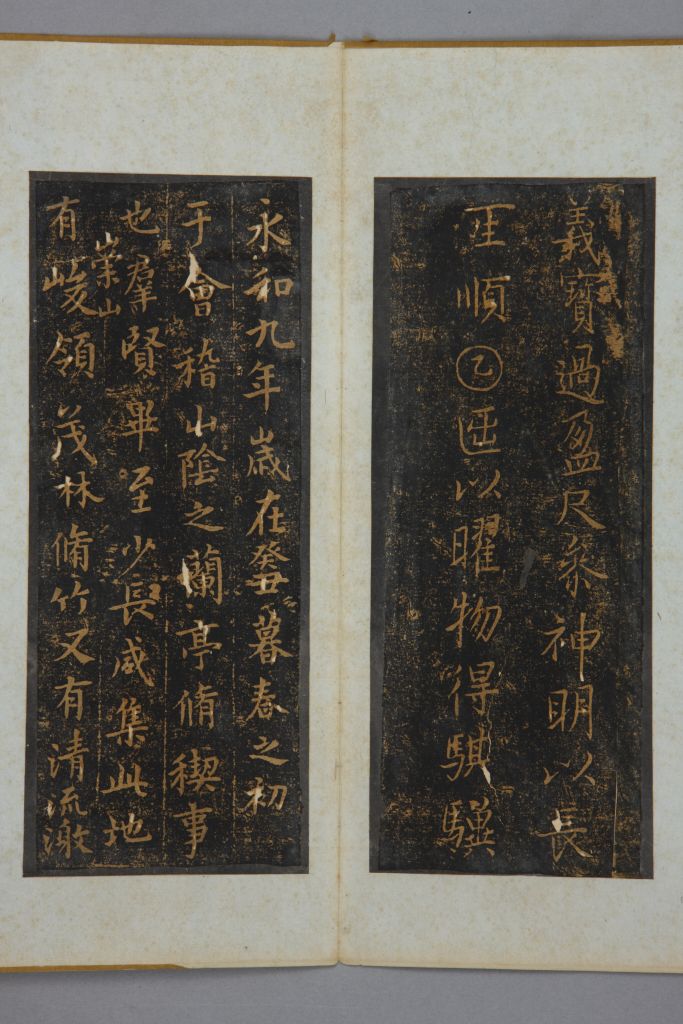 義寶過盈尺叅神明以長
順乙以曜物得騏驥
永和九年嵗在癸丑暮春之初
于會稽山陰之蘭亭脩稧事
也羣賢畢至少長咸集此地
有崇山峻領茂林脩竹又有清流激